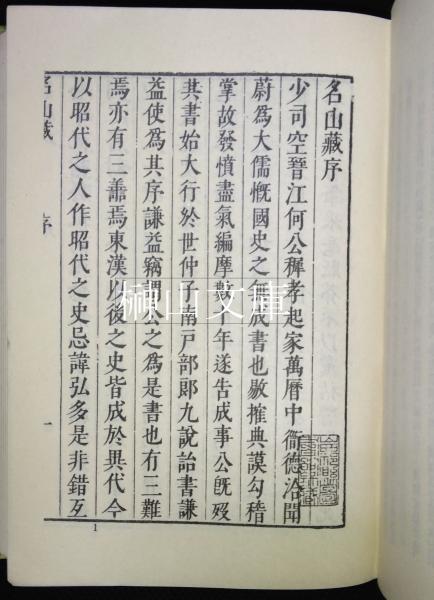 名山藏序
少司空晉江何公穉孝起家萬曆中衢德洽聞
蔚爲大儒慨國史之無成書也敭搉典謨勾稽
掌故發憤盡氣編摩數十年遂告成事公旣歿
其書始大行於世仲子南戸部郞九說詒書謙
益使爲其序謙益竊謂公之爲是書也有三難
焉亦有三善焉東漢以後之史皆成於異代今
以昭代之人作昭代之史忌諱弘多是非錯互
名山藏
序
一
1
榊山文庫